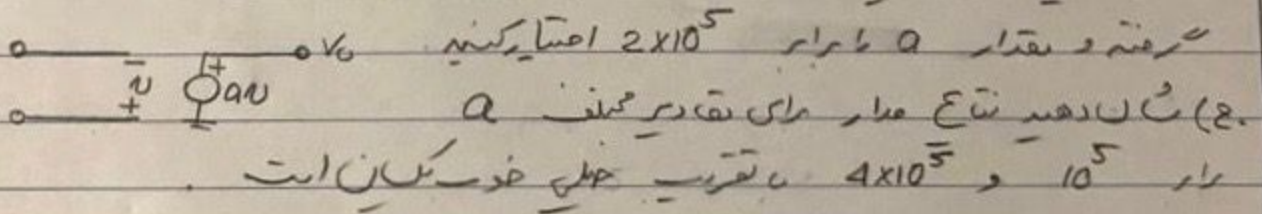 گرفته و مقدار a را برابر 2×10⁵ اختیار کنید
ج) نشان دهید نتایج مدار برای مقادیر مختلف a
10⁵ و 4×10⁵ با تقریب خیلی خوب یکسان است.
− v +
+ av
V₀